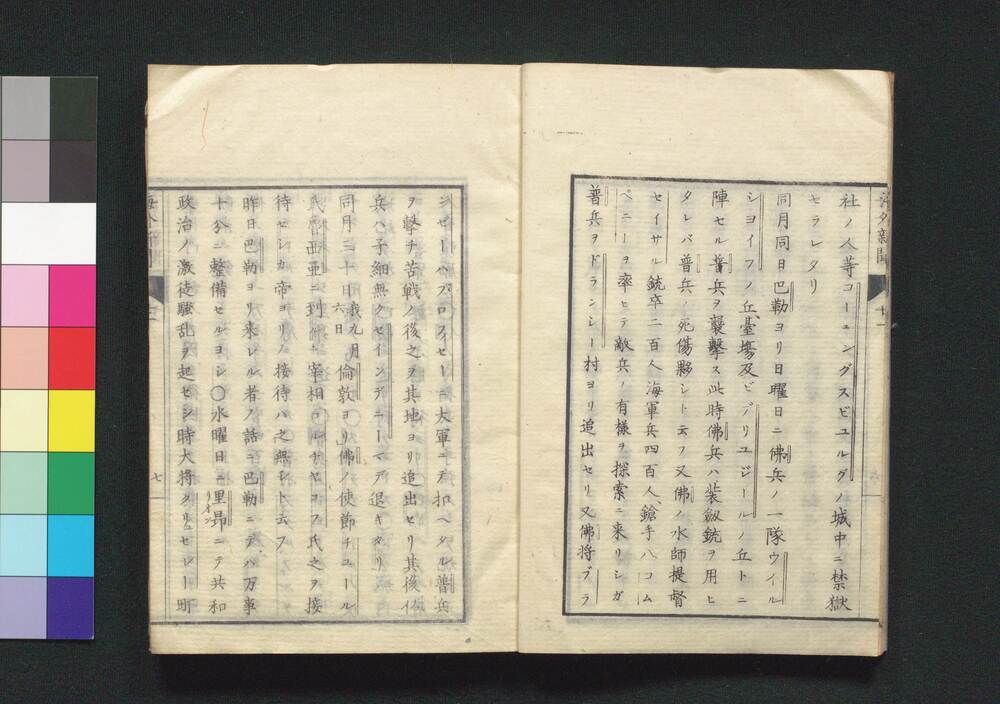 社ノ人等コーニングスビユルグノ城中ニ禁獄
セラレタリ
同月同日巴勒ヨリ日曜日ニ佛兵ノ一隊ウイル
シヨイフノ丘、臺塲及ビデリユジールノ丘トニ
陣セル普兵ヲ襲擊ス此時佛兵ハ装劔銃ヲ用ヒ
タレバ普兵ノ死傷夥シト云フ又佛ノ水師提督
セイサル銃卒二百人海軍兵四百人、鎗手八コム
ペニーヲ率ヒテ敵兵ノ有様ヲ探索ニ来リシガ
普兵ヲドランシー村ヨリ追出セリ又佛将ブラ
シゼーハブロイセーニ大軍ニテ扣ヘタル普兵
ヲ擊チ苦戦ノ後之ヲ其地ヨリ追出セリ其後佛
兵ハ子細無クセインデニーマデ退キタリ
同月三十日我九月六日倫敦ヨリ佛ノ使節チユール
氏魯西亜ニ到
待セシカ帝ヨリノ接待ハ之無シト云フ
昨日巴勒ヨリ来レル者ノ話ニ巴勒ニテハ万事
十分ニ整備セルヨシ〇水曜日ニ里昂リオンニテ共和
政治ノ激徒騒乱ヲ起セシ時大将クリュセレー町
七